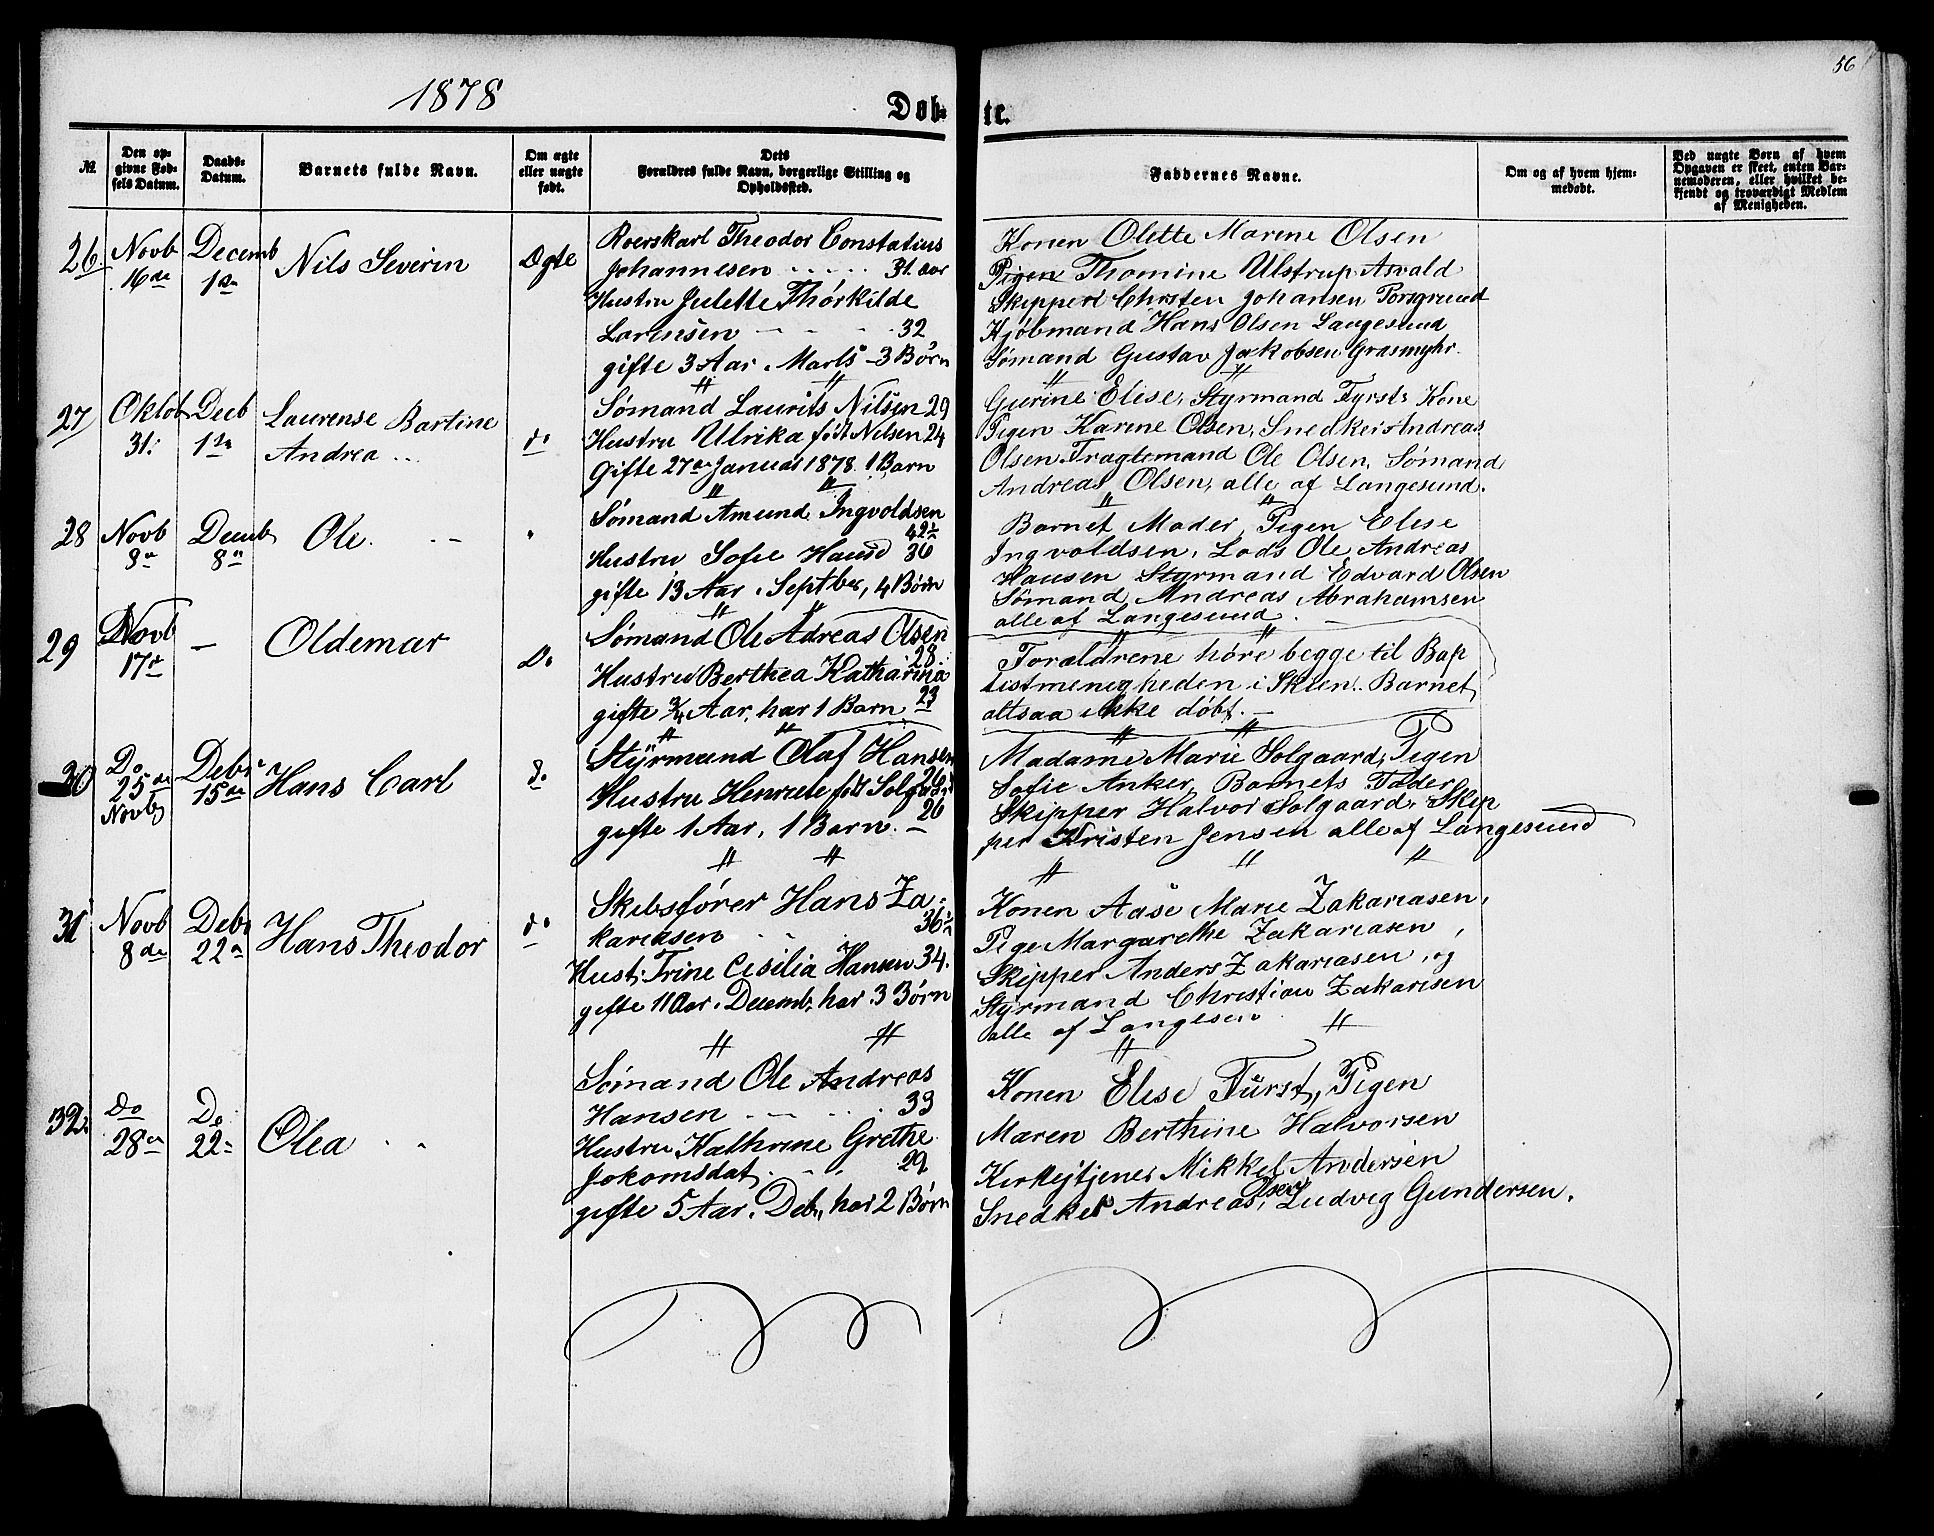 56
1878
Døb- te.
№
Den op-
givne Fød-
sels Datum.
Daabs-
Datum.
Barnets fulde Navn.
Om ægte
eller uægte
født.
Dets
Forældres fulde Navn, borgerlige Stilling og
Opholdssted.
Faddernes Navne.
Om og af hvem hjem-
medøbt.
Ved uægte Børn af hvem
Opgaven er skeet, enten Bar-
nemoderen, eller hvilket be-
kjendt og troværdigt Medlem
af Menigheden.
26. Novb 16de
Decemb 1ste
Nils Severin
Ægte
Roerskarl Theodor Constatius
Johannesen 31. aar
Hustru Julette Thorkilde
Larensen 32
gifte 3 Aar. Marts - 3 Børn
Konen Olette Marene Olsen
Pigen Thomine Ulstrup, Asvald
Skipperi Christen Johansen Porsgrund
Kjøbmand Hans Olsen Langesund
Sømand Gustav Jakobsen Grasmyhr.
27 Oktob 31:
Decb 1ste
Laurense Bartine
Andrea
do
Sømand Laurits Nilsen 29
Hustru Ulrika født Nelsen 24
Gifte 27de Januar 1878. 1 Barn
Gurine Elise, Styrmand Fyrsts Kone
Pigen Karene Olsen, Snedker Andreas
Olsen. Fragtemand Ole Olsen, Sømand
Andreas Olsen, alle af Langesund.
28 Novb 8de
Decmb 8de
Ole.
"
Sømand Amund Ingvoldsen
42
Hustru Sofie Hansd 36
gifte 13 Aar. Septber, 4 Børn
Barnet Moder, Pigen Elise
Ingvoldsen, Lods Ole Andreas
Hansen Styrmand Edvard Olsen
Sømand Andreas Abrahamsen
alle af Langesund.
29 Novb 17de
—
Oldemar
Do
Sømand Ole Adreas Olsen
28.
Hustru Berthea Katharina
gifte 3/4 Aar, har 1 Barn 23
Forældrene høre begge til Bap
tistmenigheden i Skien. Barnet
altsaa ikke døbt. —
30 Do 25de Novb
Debr 15de
Hans Carl
do
Styrmand Olaf Hansen
26
Hustru Henriete født Solgaard
gifte 1 Aar, 1 Barn. 26
Madame Marie Solgaard, Pigen
Sofie Anker, Barnets Fader
Skipper Halvor Solgaard. Skip
per Kristen Jensen alle af Langesund
31 Novb 8de
Debr 22de
Hans Theodor
do
Skibsfører Hans Za-
kariasen 36
Hust. Trine Cesilia Hansen 34.
gifte 11 Aar. Decemb, har 3 Børn
Konen Aase Marie Zakariasen,
Pige Margarethe Zakariasen,
Skipper Anders Zakariasen, og
Styrmand Christian Zakarisen
alle af Langesun
32. Do 28de
Do 22de
Olea
Sømand Ole Andreas
Hansen 33
Hustru Kathrine Grethe
Jokomsdat. 29
gifte 5 Aar. Deb, har 2 Børn
Konen Elise Fürst, Pigen
Maren Berthine Halvorsen
Kirkejtjener Mikkel Andersen
Snedker Andreas Olsen, Ludvig Gundersen.